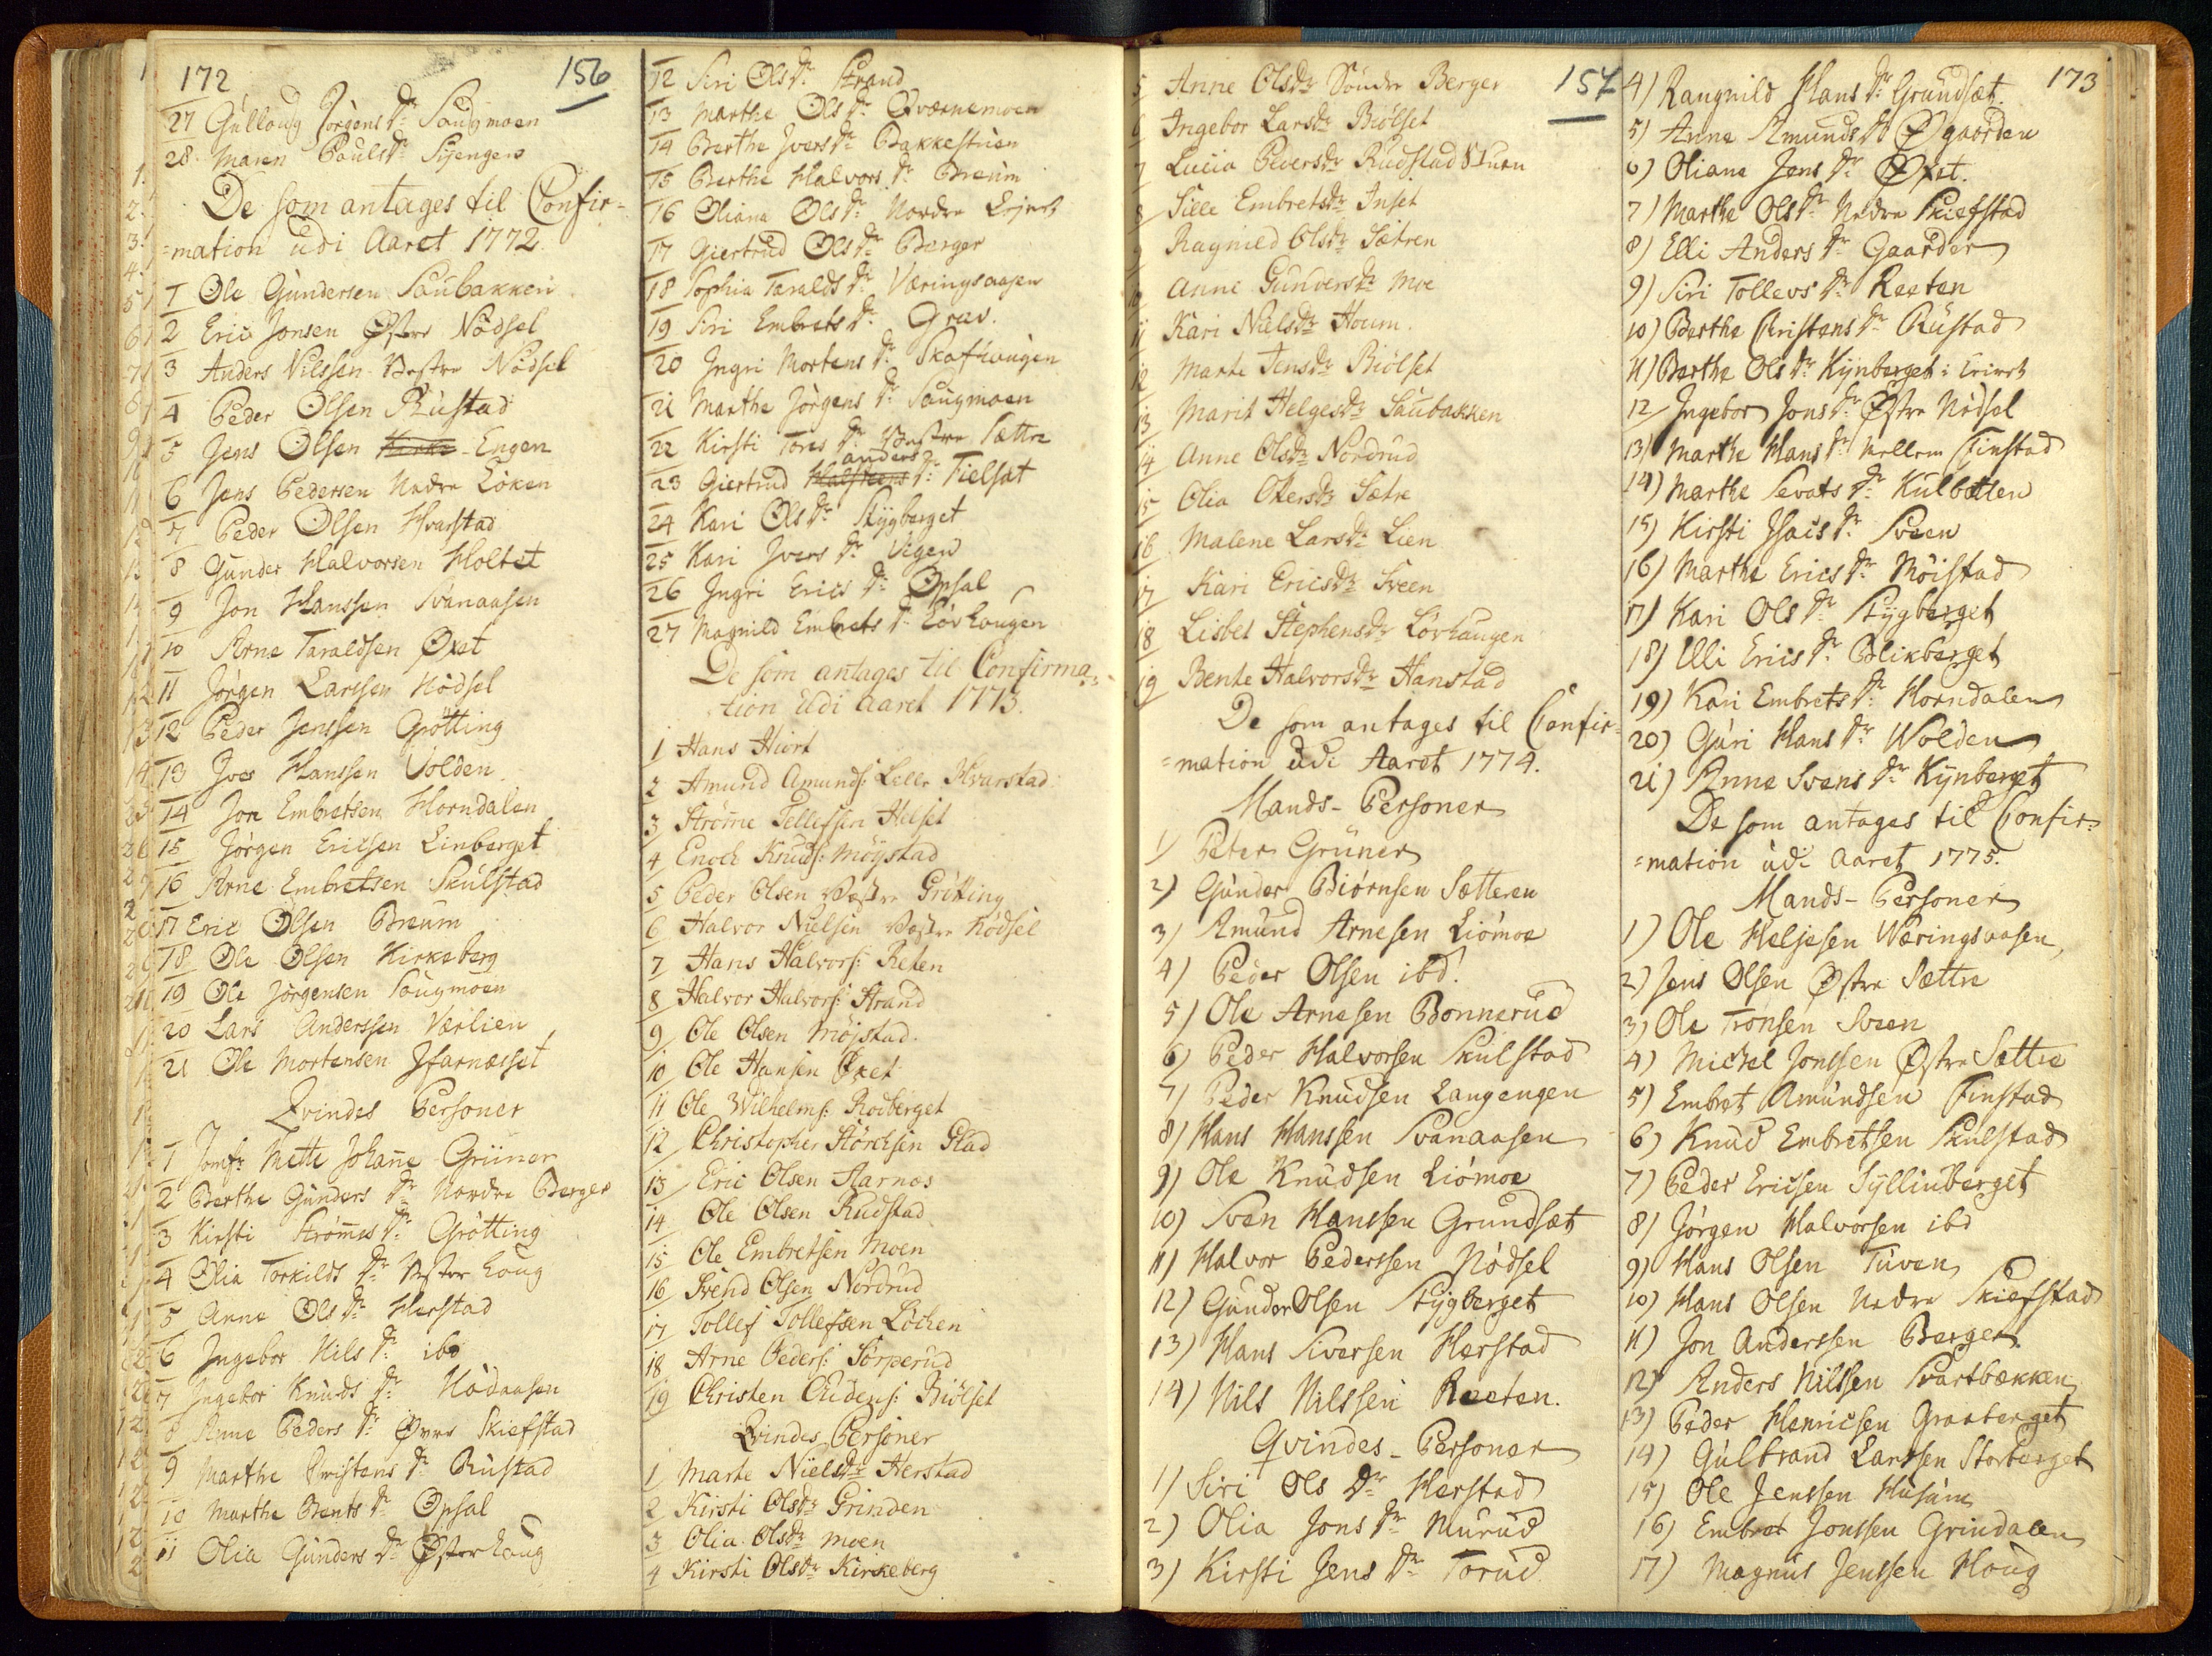 172
156
27 Gúlloug Jörgens Dr: Saúgmoen
28. Maren Pouls Dr: Syengen
De som antages til Confir=
=mation udi Aaret 1772.
1 Ole Gúndersen Saúbakken
2 Eric Jonsen Østre Nödsel
3 Anders Nilssen Vestre Nödsel
4 Peder Olsen Rústad
5 Jens Olsen Engen
6 Jens Pedersen Nedre Löken
7 Peder Olsen Hvarstad
8 Gúnder Halvorsen Holtet
9 Jon Hanssen Svanaasen
10 Arne Taraldsen Øxet
11 Jörgen Larssen Nödsel
12 Peder Jenssen Grötting
13 Iver Hanssen Volden
14 Jon Embretsen Horndalen
15 Jörgen Ericsen Linberget
16 Arne Embretsen Skúlstad
17 Eric Olsen Breum
18 Ole Olsen Kirkeberg
19 Ole Jörgensen Saugmoen
20 Lars Anderssen Værlien
21 Ole Mortensen Ifarnæsset
Qvindes Personer
1 Jomfr Mette Johane Grüner
2 Berthe Gúnders Dr Nordre Berger
3 Kirsti Strömmes Dr: Grötting
4 Olia Torkilds Dr Vester Houg
5 Anne Ols Dr Herstad
6 Ingebor Nils Dr: ibd
7 Ingebor Knuds Dr Nödaasen
8 Anne Peders Dr Øvre Skiefstad
9 Marthe Christens Dr Rústad
10 Marthe Bents Dr Opsal
11 Olia Gúnders Dr Øster Houg
12 Siri Ols Dr: Strand
13 Marthe Ols Dr: Qværnemoen
14 Berthe Ivers Dr: Bakkestuen
15 Berthe Halvors Dr Breum
16 Oliana Ols Dr: Nordre Lejret
17 Giertrud Ols Dr Berger
18 Sophia Taralds Dr Væringsaasen
19 Siri Embrets Dr: Grav.
20 Ingri Mortens Dr: Skafhaugen
21 Marthe Jörgens Dr: Saugmoen
22 Kirsti Tores Dr: Vestre Sættre
23 Giertrud Halsteens anders Dr: Tielsæt
24 Kari Ols Dr Stÿgberget
25 Kari Ivers Dr Vigen
26 Ingri Erics Dr: Opsal
27 Magnild Embrets Dr: Lövhaugen
De som antages til Confirma=
tion udi aaret 1773.
1 Hans Hiort
2 Amund Amunds: Lelle Hvarstad
3 Strömme Tellefsen Helset
4 Enoch Knuds: Möystad
5 Peder Olsen Vestre Grötting
6 Halvor Nielsen Vestre Nödsel
7 Hans Halvors: Reten
8 Halvor Halvors: Strand
9 Ole Olsen Möjstad.
10 Ole Hansen Øxet
11 Ole Wilhelms: Rodberget
12 Christopher Störchsen Glad
13 Eric Olsen Aarnes
14 Ole Olsen Rudstad
15 Ole Embretsen Moen
16 Svend Olsen Nordrud
17 Tollef Tollefsen Löchen
18 Arne Peders: Sörperud
19 Christen Audens: Biölset
Qvindes Personer
1 Marte Nielsdr Herstad
2 Kirsti Olsdr Grinden
3 Olia Olsdr moen
4 Kirsti Olsdr Kirkeberg
157
173
5 Anne Olsdr Söndre Berger
6 Ingebor Larsdr Biölset
7 Lucia Pedersdr Rudstad Stuen
8 Sille Embretsdr Inset
9 Ragnild Olsdr Sætren
10 Anne Gundersdr Moe
11 Kari Nielsdr Houm.
12 Marte Jensdr Biölset
13 Marit Helgesdr Saubakken
14 Anne Olsdr Nordrud
15 Olia Olsersdr Sætre
16 Malene Larsdr Lien
17 Kari Ericsdr Sveen
18 Lisbet Stephensdr Lövhaugen
19 Bente Halvorsdr Hanstad
De som antages til Confir=
=mation udi Aaret 1774.
Mands-Personer
1) Peter Grüner
2) Gúnder Biörnsen Sætteren
3) Amund Arnesen Liömoe
4) Peder Olsen ibd.
5) Ole Arnesen Bonnerud
6) Peder Halvorsen Skulstad
7) Peder Knudsen Langengen
8) Hans Hanssen Svanaasen
9) Ole Knudsen Liömoe
10) Sven Hanssen Grundsæt
11) Halvor Pederssen Nödsel
12) Gunder Olsen Stÿgberget
13) Hans Siversen Herstad
14) Nils Nilssen Reeten.
Qvindes-Personer
1) Siri Ols Dr Herstad
2) Olia Jons Dr Murud
3) Kirsti Jens Dr Torúd
4) Raugnild Hans Dr Grundsæt.
5) Anne Amunds Dr Øgaarden
6) Oliane Jens Dr Øxet.
7) Marthe Ols Dr Nedre Skiefstad
8) Elli Anders Dr Gaarder
9) Siri Tollevs Dr Reeten
10) Berthe Christens Dr Rústad
11) Berthe Ols Dr Kÿnberget: Leiret
12 Ingebor Jons Dr: Østre Nödsel
13) Marthe Hans Dr Mellem Finstad
14) Marthe Sevats Dr Kúlbotten
15) Kirsti Isacs Dr Sveen
16) Marthe Erics Dr Möistad
17) Kari Ols Dr Stÿgberget
18) Elli Erics Dr Blikberget
19) Kari Embrets Dr: Horndalen
20) Gúri Hans Dr Wolden
21) Anne Svens Dr Kÿnberget
De som antages til Confir=
=mation udi Aaret 1775.
Mands-Personer
1) Ole Heljesen Wæringsaasen,
2) Jens Olsen Østre Sættre
3) Ole Tronsen Sveen
4) Mickel Jonssen Østre Sættre
5) Embret Amúndsen Finstad
6) Knud Embretsen Skulstad
7) Peder Ericsen Syllinberget
8) Jörgen Halvorsen ibd
9) Hans Olsen Túven
10) Hans Olsen Nedre Skiefstad
11) Jon Anderssen Berger
12) Anders Nilssen Svartbækken
13) Peder Henricsen Graaberget
14) Gúlbrand Larssen Storberget
15) Ole Jenssen Husúm
16) Embret Jonssen Grindalen
17) Magnus Jenssen Houg